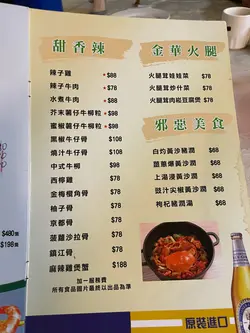 甜香辣
辣子雞 $88
辣子牛肉 $88
水煮牛肉 $88
芥末薯仔牛柳粒 $98
蜜椒薯仔牛柳粒 $98
黑椒牛仔骨 $88
燒汁牛仔骨 $88
中式牛柳 $98
西檸雞 $78
金梅欖角骨 $78
柚子骨 $78
京都骨 $78
菠蘿沙拉骨 $78
鎮江骨 $78
麻辣雞煲蟹 $188
加一服務費
所有食品圖片最終以出品為準
金華火腿
火腿茸娃娃菜 $78
火腿茸炒什菜 $78
火腿茸肉崧豆腐煲 $78
邪惡美食
白灼黃沙豬潤 $78
薑蔥爆黃沙潤 $78
上湯浸黃沙潤 $78
豉汁尖椒黃沙潤 $78
枸杞豬潤湯 $78
$480
$198
原裝進口